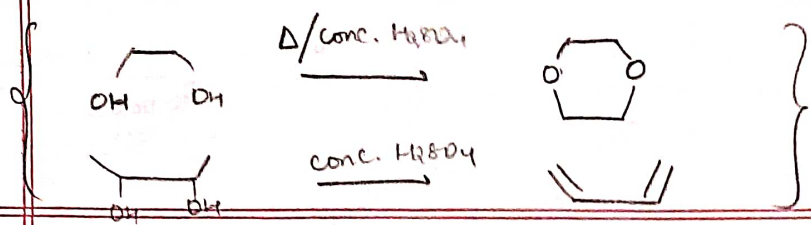 Δ/conc. H₂SO₄
OH OH
O O
conc. H₂SO₄
OH OH